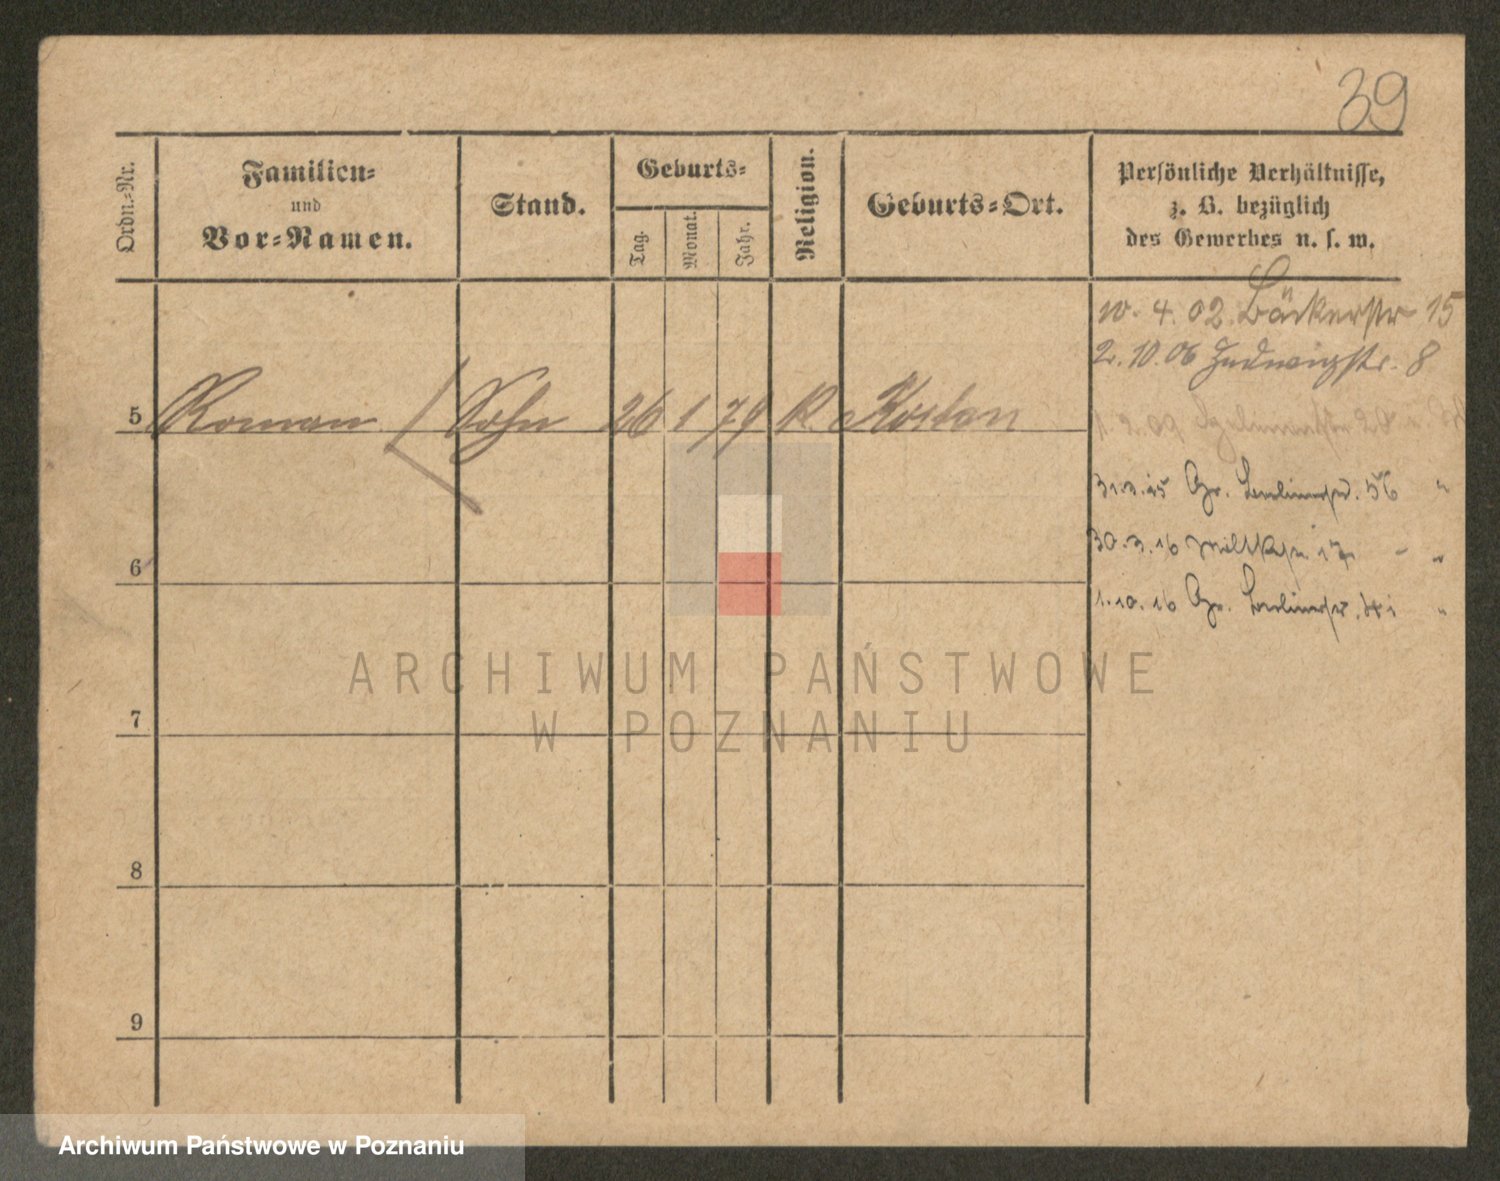 39
Ordn.-Nr.
Familien-
und
Vor-Namen.
Stand.
Geburts-
Tag.
Monat.
Jahr.
Religion.
Geburts-Ort.
Persönliche Verhältnisse,
z. B. bezüglich
des Gewerbes u. s. w.
10. 4. 02 Bäckerstr 15
2. 10. 06 Hedwigstr. 8
5 Roman Sohn 26 1 79 k. Kosten
1. 2. 09
31.3.15 Gr. Berlinerstr. 56 "
6
30.3.16 Moltkestr. 17 - "
1.10.16 Gr. Berlinerstr. "
7
8
9
ARCHIWUM PAŃSTWOWE
W POZNANIU
Archiwum Państwowe w Poznaniu